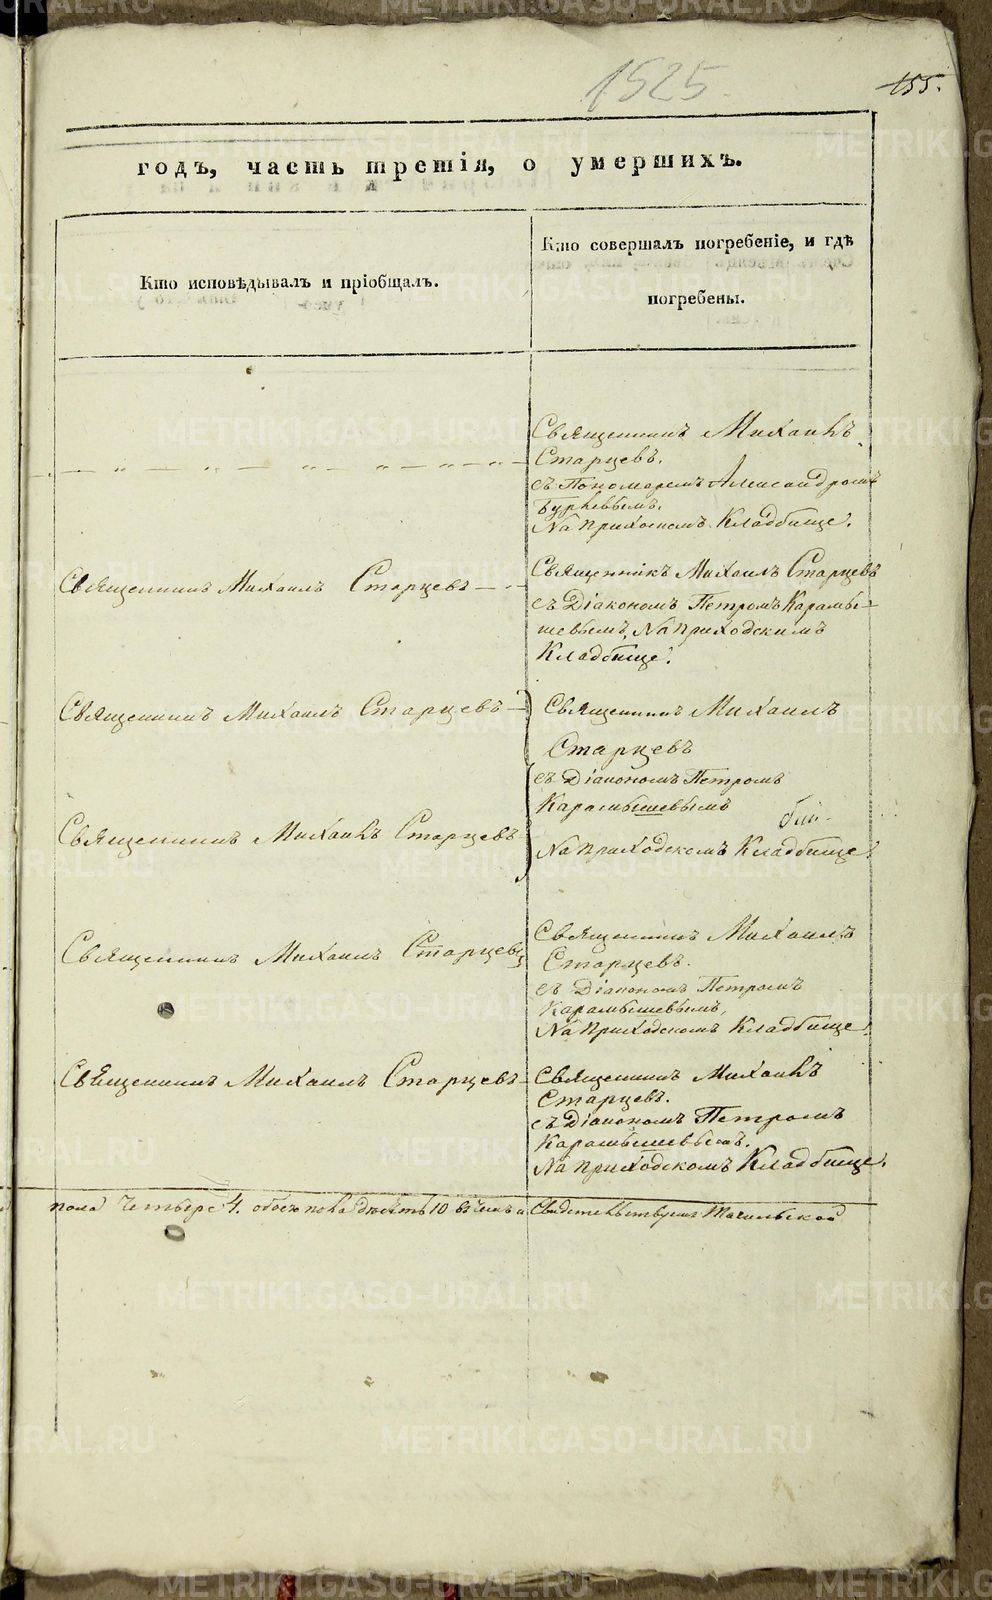 1525.
155.
годъ, часть третія, о умершихъ.
Кто исповѣдывалъ и пріобщалъ.
Кто совершалъ погребеніе, и гдѣ
погребены.
Священникъ Михаилъ
Старцевъ.
съ Пономаремъ Александромъ
На приходскомъ Кладбище.
Священникъ Михаилъ Старцевъ
Священникъ Михаилъ Старцевъ
съ Діакономъ Петромъ Карамы-
шевымъ, На приходскимъ
Кладбище.
Священникъ Михаилъ Старцевъ
Священникъ Михаилъ
Старцевъ
съ Діакономъ Петромъ
Карамышевымъ
Священникъ Михаилъ Старцевъ
На приходскомъ Кладбище.
Священникъ Михаилъ Старцевъ
Священникъ Михаилъ
Старцевъ.
съ Діакономъ Петромъ
Карамышевымъ,
На приходскомъ Кладбище.
Священникъ Михаилъ Старцевъ
Священникъ Михаилъ
Старцевъ.
съ Діакономъ Петромъ
Карамышевымъ.
На приходскомъ Кладбище.
пола Четыре 4. обоего пола десять 10 въ чемъ и Свидетельствуемъ Тагильской
METRIKI.GASO-URAL.RU